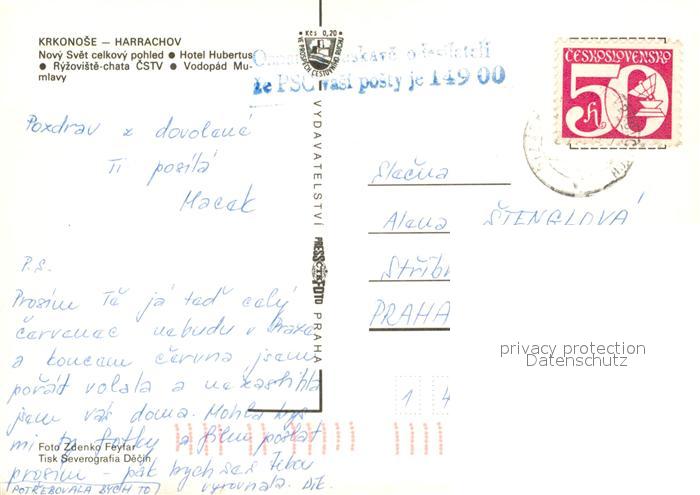 KRKONOŠE – HARRACHOV
Nový Svět celkový pohled ● Hotel Hubertus
● Rýžoviště-chata ČSTV ● Vodopád Mu-
mlavy
Kčs 0,20
VE PROSPĚCH CESTOVNÍHO RUCHU
že PSČ vaší pošty je 149 00
ČESKOSLOVENSKO
50 h
Pozdrav z dovolené
Ti posílá
Macek
P.S.
Prosím Tě já teď celý
červenec nebudu v Praze
a koncem června jsem
pořád volala a nezastihla
jsem vás doma. Mohla bys
mi ty fotky a film poslat
prosím – pak bych se s Tebou
(POTŘEBOVALA BYCH TO) vyrovnala. Dík.
VYDAVATELSTVÍ PRESSFOTO PRAHA
Slečna
Alena ŠTENGLOVÁ
Stříbr
PRAHA
1 4
privacy protection
Datenschutz
Foto Zdenko Feyfar
Tisk Severografia Děčín